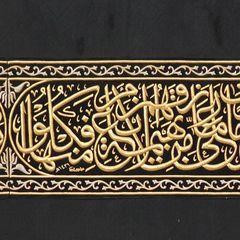 على ما رزقهم من بهيمة الأنعام فكلوا منها